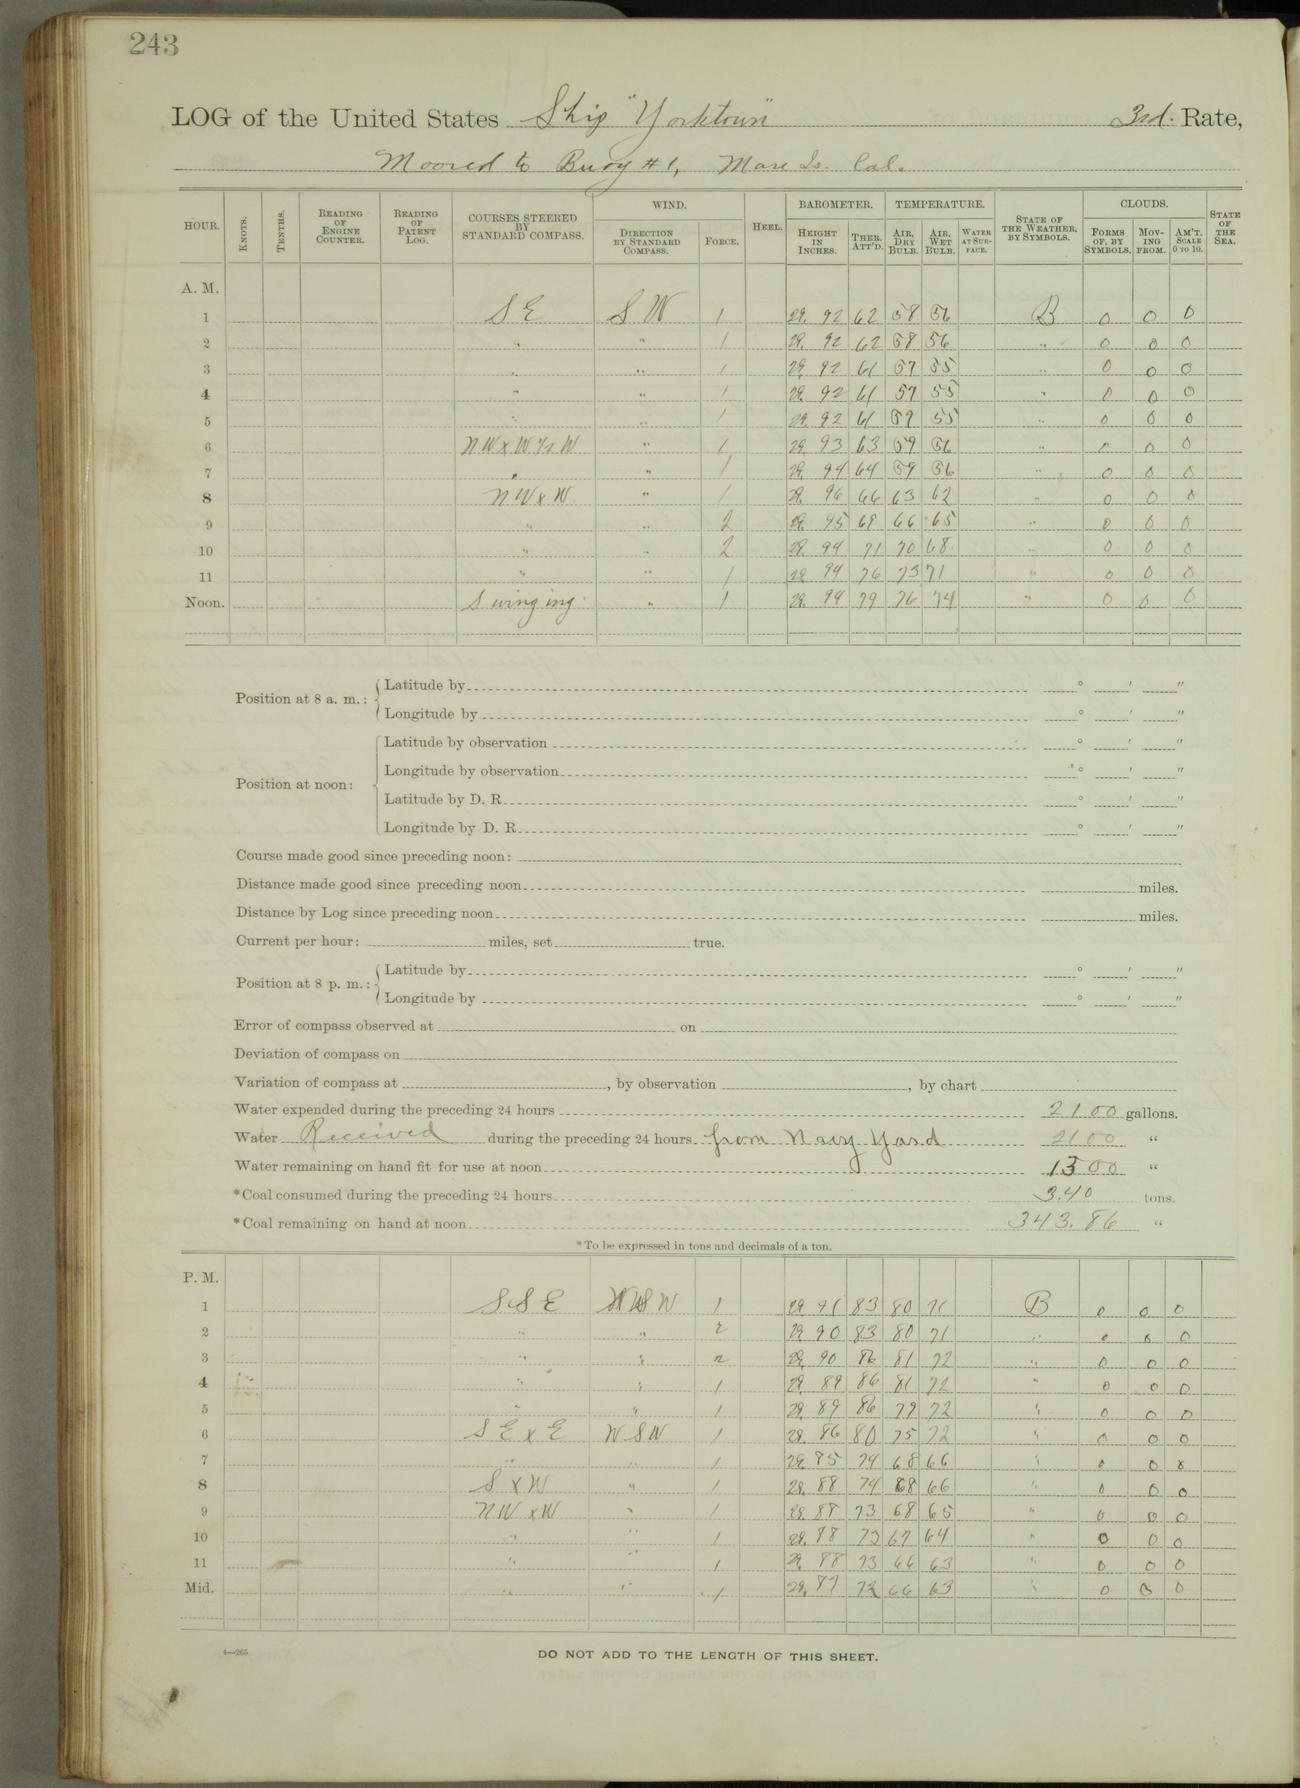 243
LOG of the United States Ship "Yorktown" 3rd. Rate,
Moored to Buoy #1, Mare Is. Cal.
HOUR. KNOTS. TENTHS. READING OF ENGINE COUNTER. READING OF PATENT LOG. COURSES STEERED BY STANDARD COMPASS. WIND. DIRECTION BY STANDARD COMPASS. FORCE. HEEL. BAROMETER. HEIGHT IN INCHES. THER. ATT'D. TEMPERATURE. AIR, DRY BULB. AIR, WET BULB. WATER AT SURFACE. STATE OF THE WEATHER, BY SYMBOLS. CLOUDS. FORMS OF, BY SYMBOLS. MOVING FROM. AM'T. SCALE 0 TO 10. STATE OF THE SEA.
A. M.
1 SE SW 1 29. 92 62 58 56 B 0 0 0
2 " " 1 29. 92 62 58 56 " 0 0 0
3 " " 1 29. 92 61 57 55 " 0 0 0
4 " " 1 29. 92 61 57 55 " 0 0 0
5 " " 1 29. 92 61 59 55 " 0 0 0
6 NW x W ½ W " 1 29. 93 63 59 56 " 0 0 0
7 " " 1 29. 94 64 59 56 " 0 0 0
8 NW x W " 1 29. 96 66 63 62 " 0 0 0
9 " " 2 29. 95 69 66 65 " 0 0 0
10 " " 2 29. 94 71 70 68 " 0 0 0
11 " " 1 29. 94 76 73 71 " 0 0 0
Noon. Swinging " 1 29. 94 79 76 74 " 0 0 0
Position at 8 a. m.: Latitude by ° ' "
Longitude by ° ' "
Position at noon: Latitude by observation ° ' "
Longitude by observation ° ' "
Latitude by D. R. ° ' "
Longitude by D. R. ° ' "
Course made good since preceding noon:
Distance made good since preceding noon miles.
Distance by Log since preceding noon miles.
Current per hour: miles, set true.
Position at 8 p. m.: Latitude by ° ' "
Longitude by ° ' "
Error of compass observed at on
Deviation of compass on
Variation of compass at , by observation , by chart
Water expended during the preceding 24 hours 2100 gallons.
Water Received during the preceding 24 hours from Navy Yard 2100 "
Water remaining on hand fit for use at noon 1300 "
*Coal consumed during the preceding 24 hours 3.40 tons.
*Coal remaining on hand at noon 343.86 "
*To be expressed in tons and decimals of a ton.
P. M.
1 SSE WSW 1 29. 91 83 80 71 B 0 0 0
2 " " 2 29. 90 83 80 71 " 0 0 0
3 " " 2 29. 90 86 81 72 " 0 0 0
4 " " 1 29. 89 86 81 72 " 0 0 0
5 " " 1 29. 89 86 79 72 " 0 0 0
6 SE x E WSW 1 29. 86 80 75 72 " 0 0 0
7 " " 1 29. 85 74 68 66 " 0 0 0
8 S x W " 1 29. 88 74 68 66 " 0 0 0
9 NW x W " 1 29. 88 73 68 65 " 0 0 0
10 " " 1 29. 88 73 67 64 " 0 0 0
11 " " 1 29. 88 73 66 63 " 0 0 0
Mid. " " 1 29. 87 72 66 63 " 0 0 0
4—265
DO NOT ADD TO THE LENGTH OF THIS SHEET.